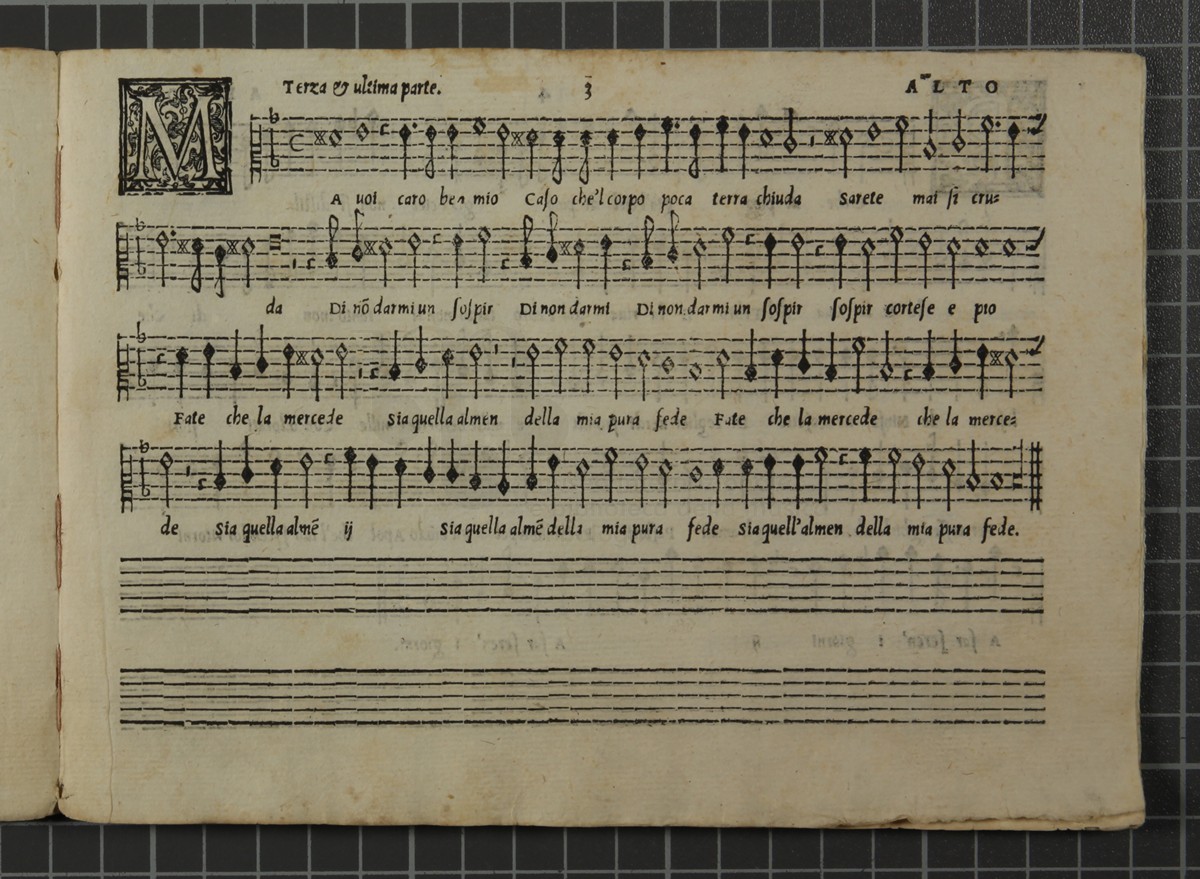 Terza & ultima parte. 3 ALTO
MA uoi caro ben mio Caſo che'l corpo poca terra chiuda Sarete mai ſi cru=
da Di nõ darmi un ſoſpir Di non darmi Di non darmi un ſoſpir ſoſpir corteſe e pio
Fate che la mercede Sia quella almen della mia pura fede Fate che la mercede che la merce=
de Sia quella almẽ ij Sia quella almẽ della mia pura fede Sia quell'almen della mia pura fede.